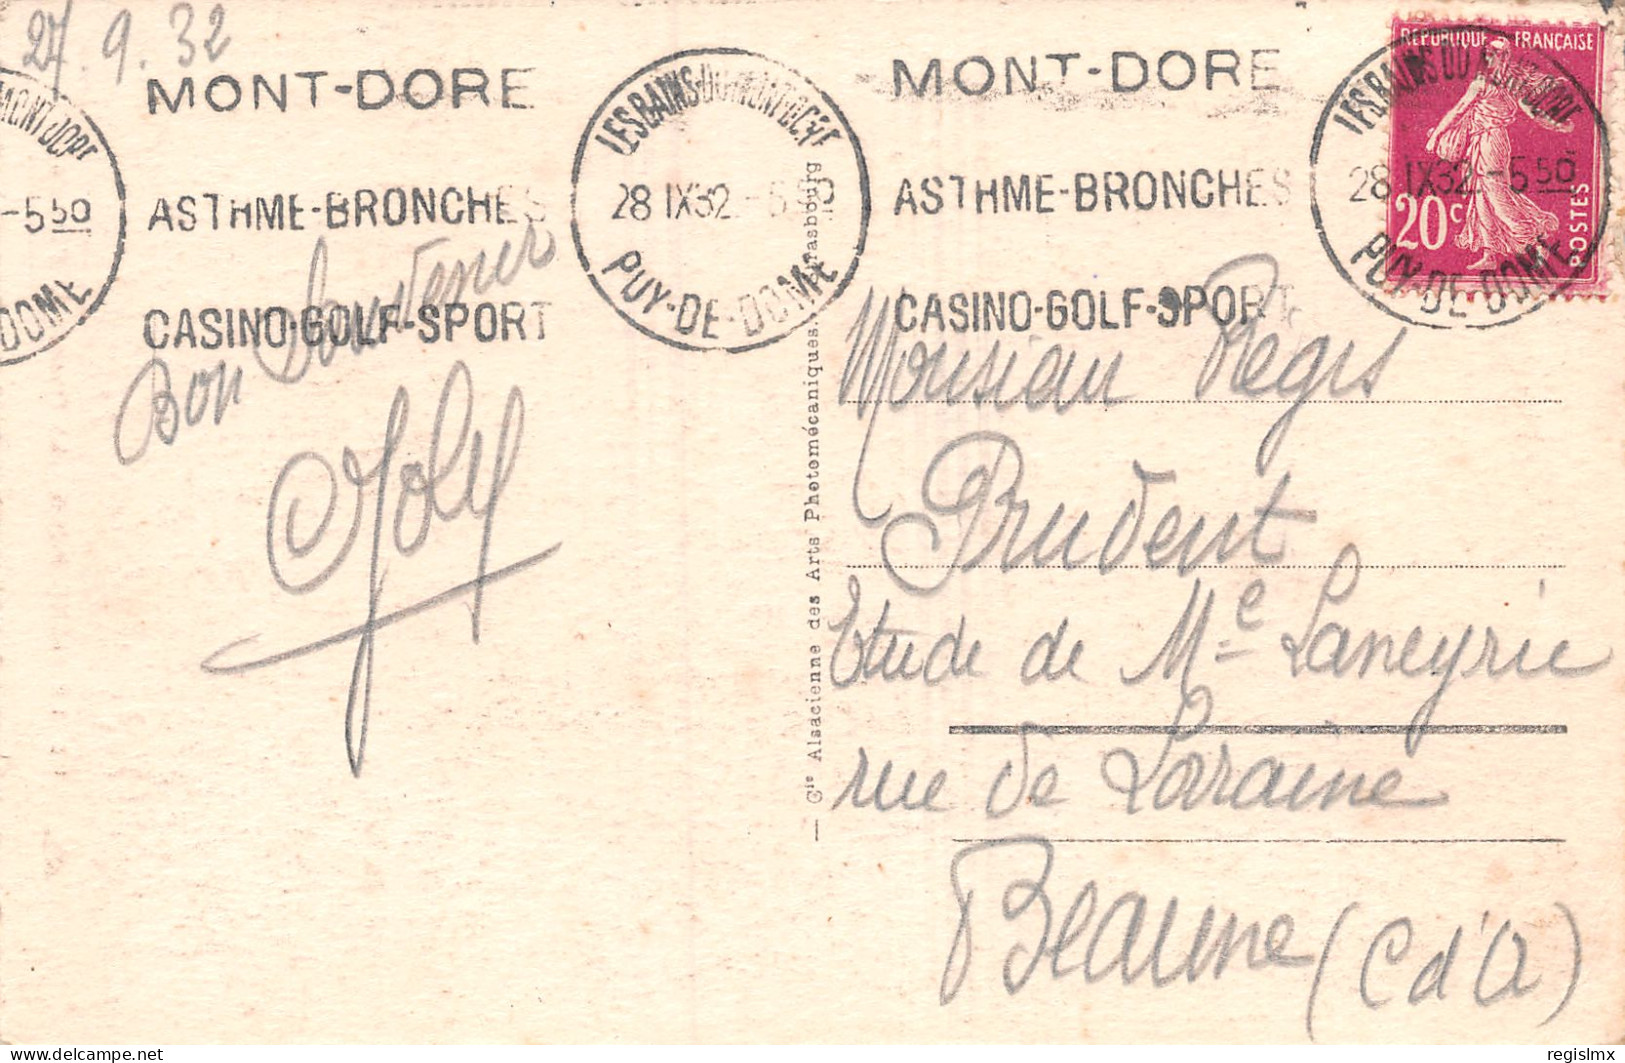 27.9.32
MONT-DORE
ASTHME-BRONCHES
CASINO-GOLF-SPORT
LES BAINS DU MONT DORE
28 IX 32 - 5 50
PUY-DE-DOME
MONT-DORE
ASTHME-BRONCHES
CASINO-GOLF-SPORT
LES BAINS DU MONT DORE
28 IX 32 - 5 50
PUY-DE-DOME
MONT DORE
-5 50
DOME
REPUBLIQUE FRANÇAISE
20c
POSTES
Bon Souvenir
Joly
— Cie Alsacienne des Arts Photomécaniques, Strasbourg
Monsieur Regis
Prudent
Etude de Me Laneyrie
rue de Loraine
Beaune (C d'O)
delcampe.net
regislmx